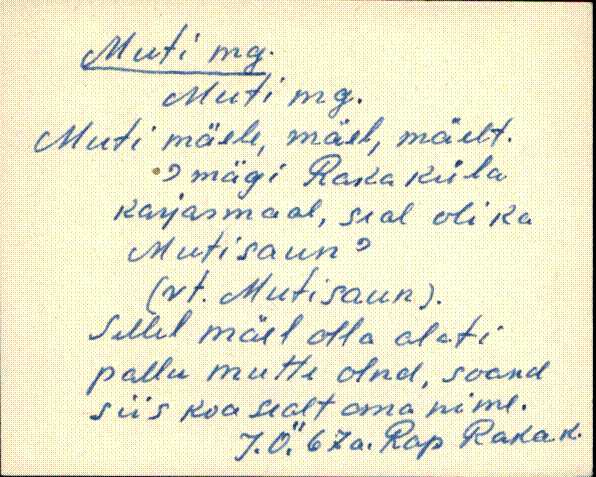 Muti mg.
Muti mg.
Muti mäele, mäel, mäelt.
? mägi Raka küla
karjasmaal, seal oli ka
Mutisaun?
(vt. Mutisaun).
Sellel mäel olla alati
pallu mutte olnd, soand
siis koa sealt oma nime.
J.Ö. 67a. Rap Raka k.